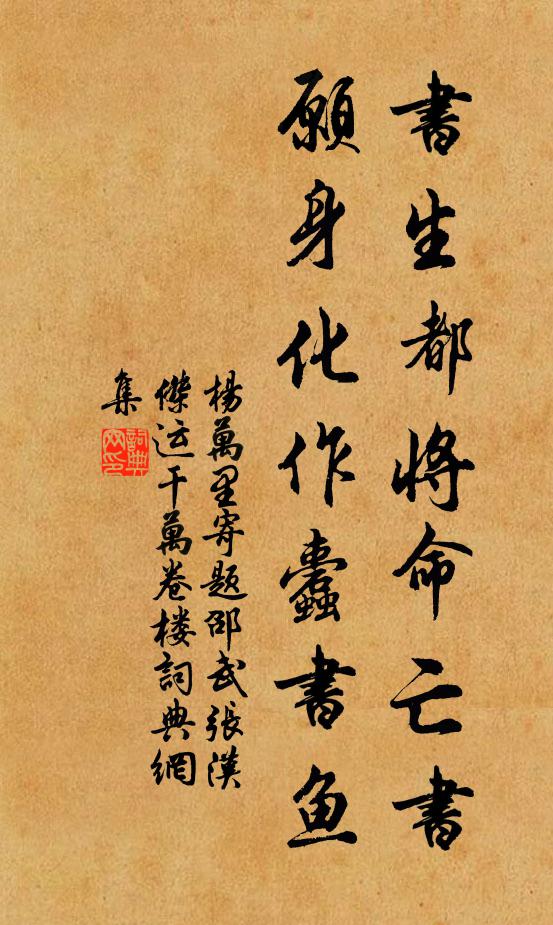 書生都將命亡書
願身化作蠹書魚
楊萬里寄題邵武張漢
傑运干萬卷楼詞典網
集
詞典
网印